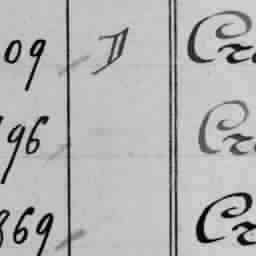 09 D Cr
96 Cr
869 Cr